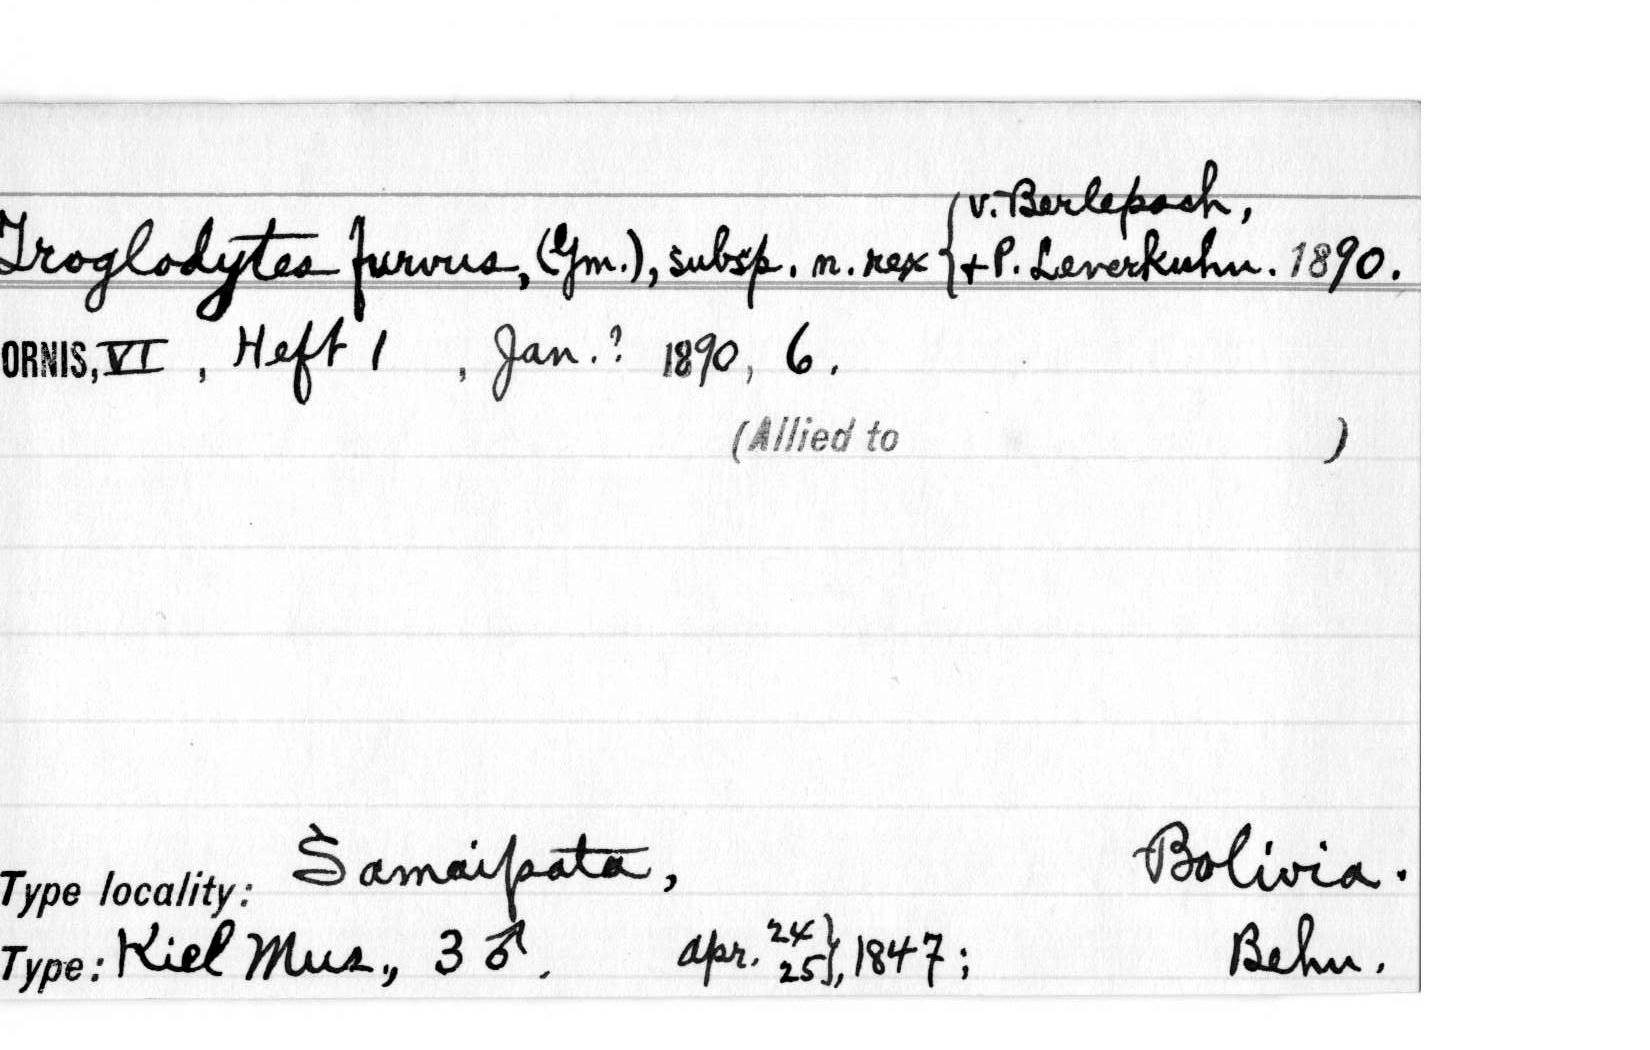 v. Berlepsch,
Troglodytes furvus, (Gm.), subsp. n. rex { + P. Leverkuhn. 1890.
ORNIS, VI, Heft 1, Jan.? 1890, 6.
(Allied to )
Type locality: Samaipata, Bolivia.
Type: Kiel Mus., 3 ♂. Apr. 24 25}, 1847; Behn.